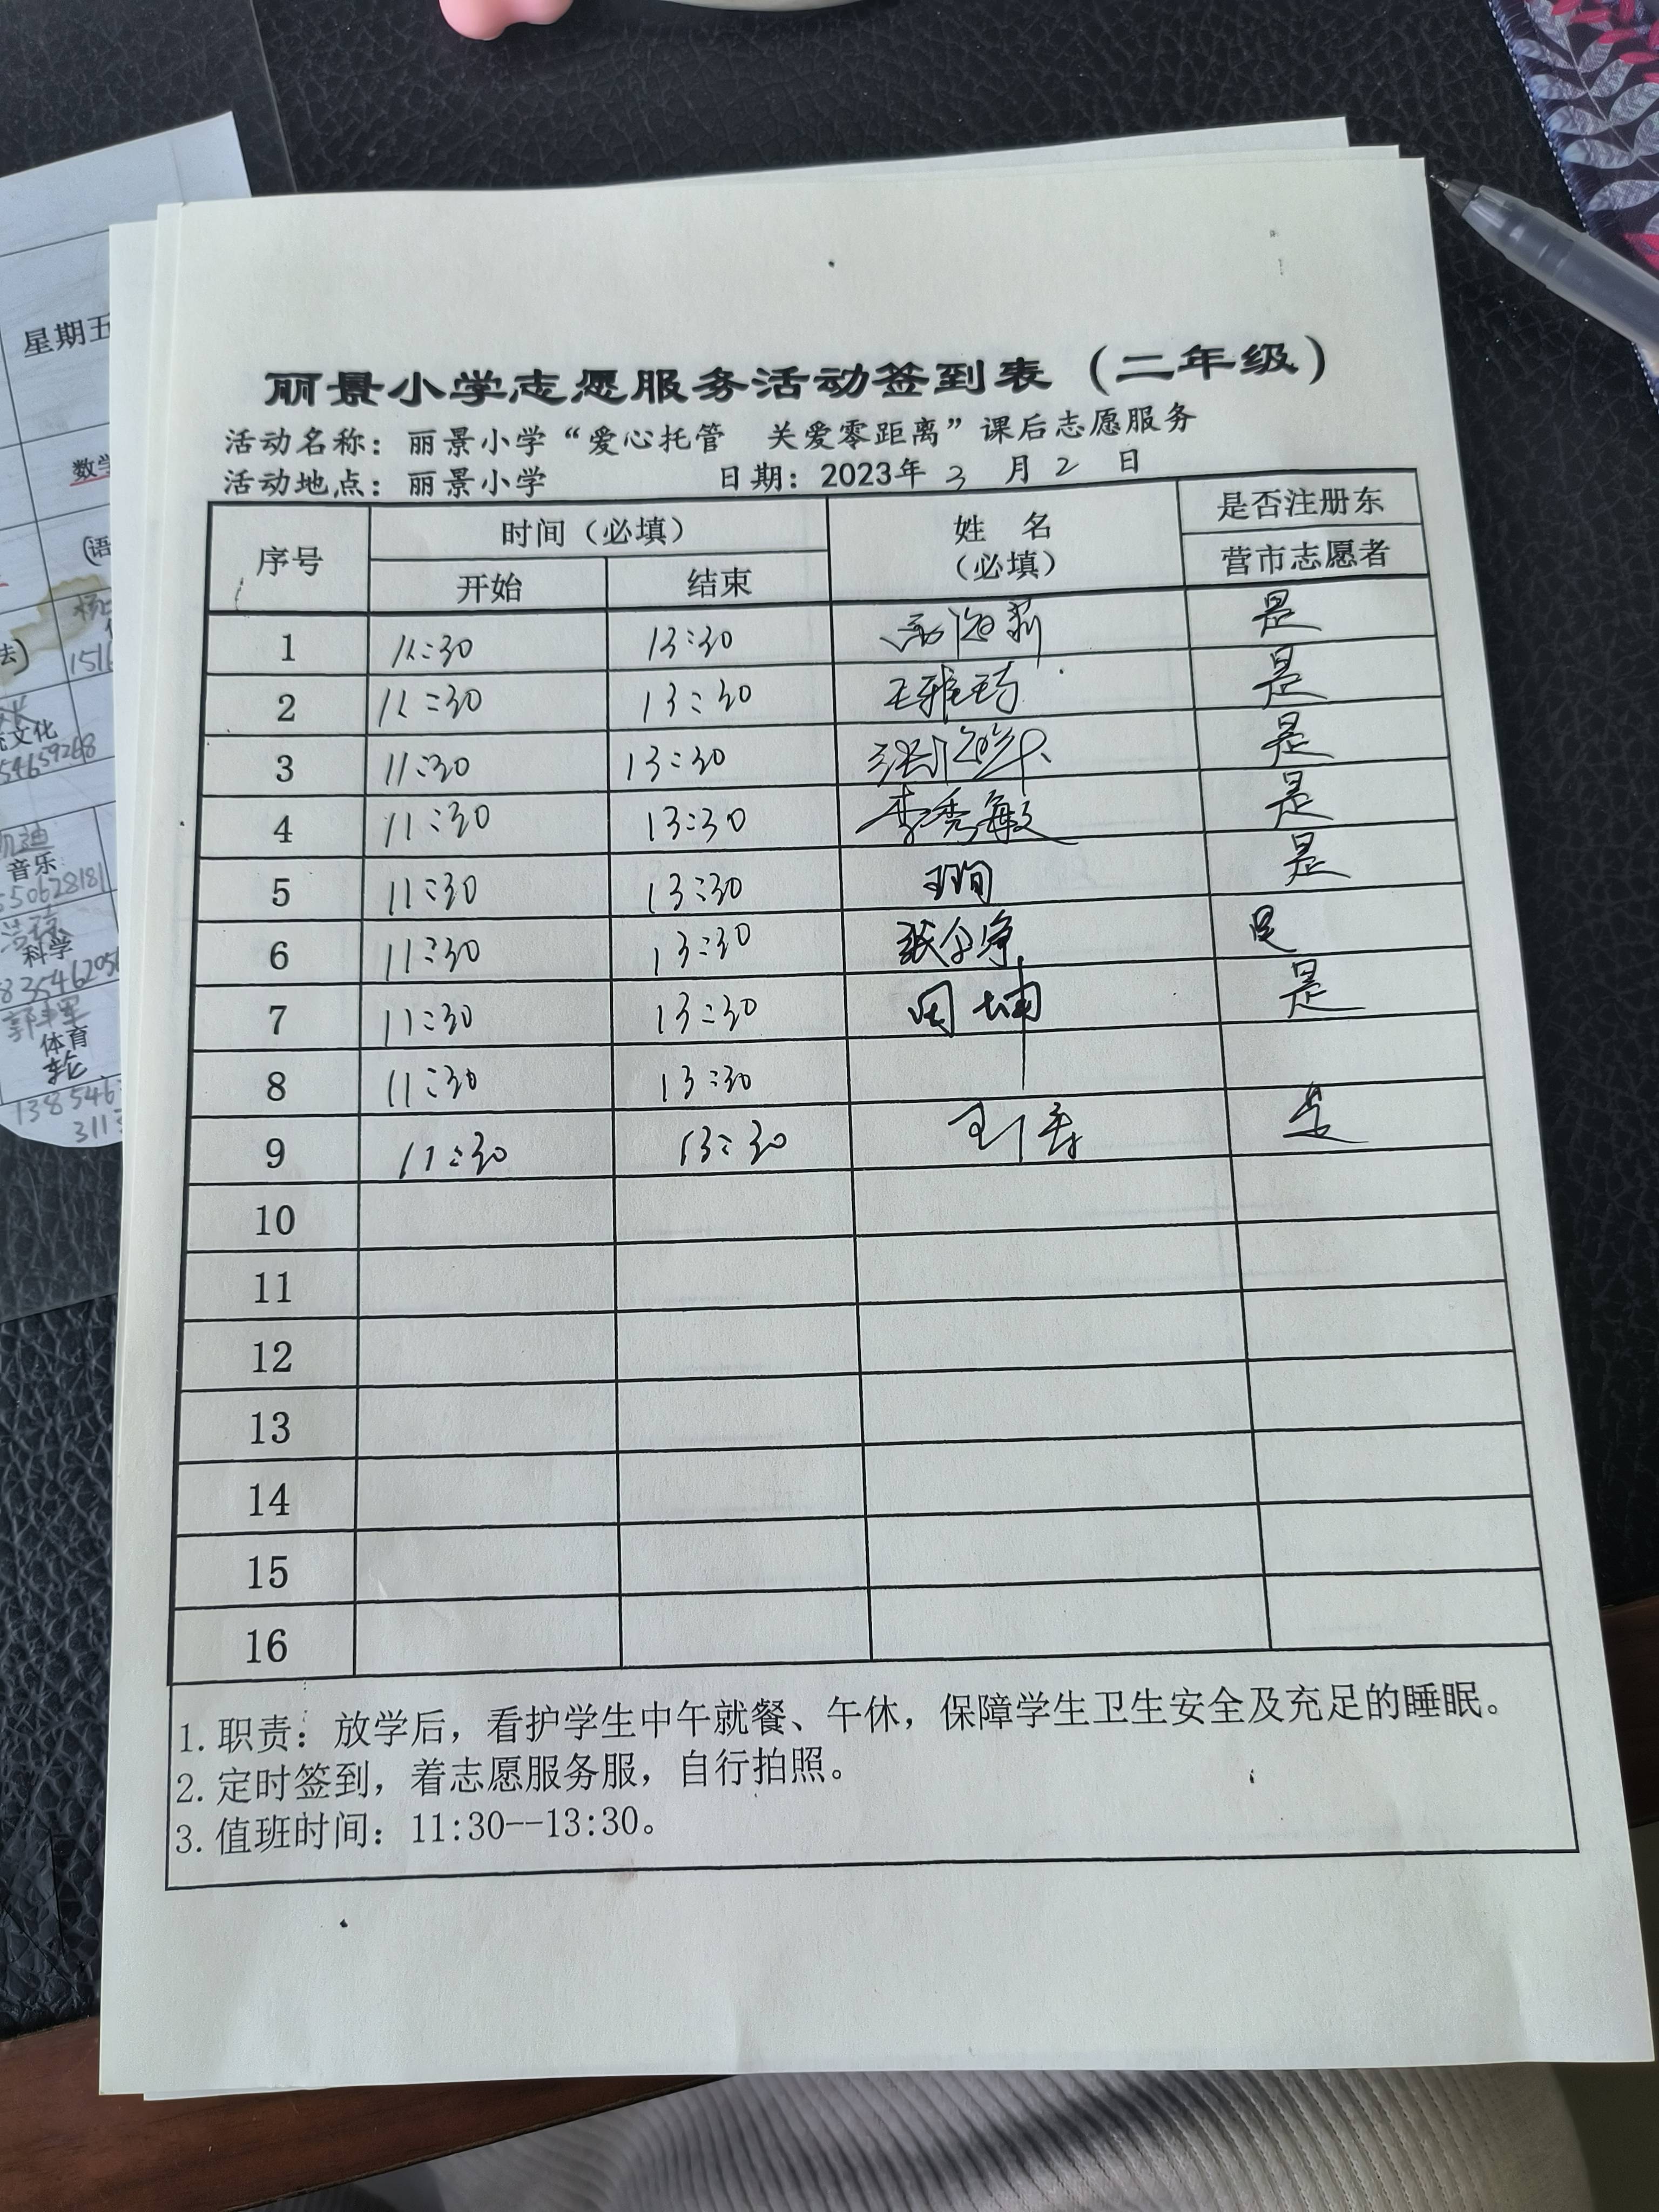 丽景小学志愿服务活动签到表（二年级）
活动名称：丽景小学“爱心托管 关爱零距离”课后志愿服务
活动地点：丽景小学 日期：2023年 3 月 2 日
序号 时间（必填） 姓 名（必填） 是否注册东营市志愿者
开始 结束
1 11:30 13:30 是
2 11:30 13:30 王雅琦 是
3 11:30 13:30 是
4 11:30 13:30 李秀敏 是
5 11:30 13:30 是
6 11:30 13:30 是
7 11:30 13:30 周坤 是
8 11:30 13:30
9 11:30 13:30 是
10
11
12
13
14
15
16
1.职责：放学后，看护学生中午就餐、午休，保障学生卫生安全及充足的睡眠。
2.定时签到，着志愿服务服，自行拍照。
3.值班时间：11:30--13:30。
星期五
数学
文化
54659268
音乐
550628181
科学
体育